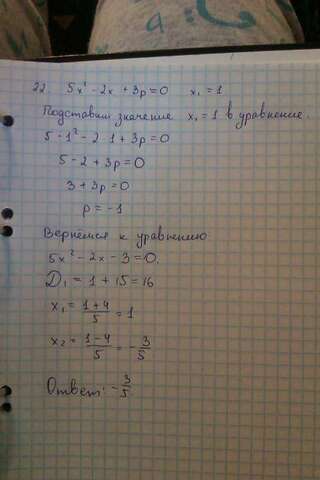 22. 5x² - 2x + 3p = 0 x₁ = 1
Подставим значение x₁ = 1 в уравнение.
5 · 1² - 2 · 1 + 3p = 0
5 - 2 + 3p = 0
3 + 3p = 0
p = -1
Вернёмся к уравнению
5x² - 2x - 3 = 0.
D₁ = 1 + 15 = 16
x₁ = (1+4)/5 = 1
x₂ = (1-4)/5 = -3/5
Ответ: -3/5